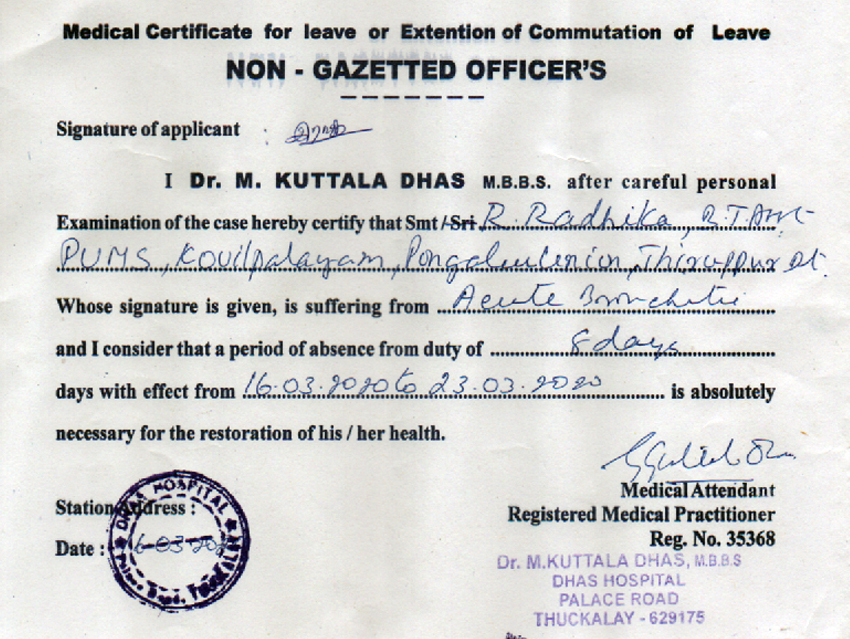 Medical Certificate for leave or Extention of Commutation of Leave
NON - GAZETTED OFFICER'S
Signature of applicant :
I Dr. M. KUTTALA DHAS M.B.B.S. after careful personal
Examination of the case hereby certify that Smt /Sri R. Radhika, B.T. Asst
PUMS, Kovilpalayam, Pongalur Union, Thiruppur Dt.
Whose signature is given, is suffering from Acute Bronchitis
and I consider that a period of absence from duty of 8 days
days with effect from 16.03.2020 to 23.03.2020 is absolutely
necessary for the restoration of his / her health.
Medical Attendant
Station Address :
Registered Medical Practitioner
Reg. No. 35368
Date : 16-03-2020
DHAS HOSPITAL
THUCKALAY
Dr. M.KUTTALA DHAS, M.B.B.S
DHAS HOSPITAL
PALACE ROAD
THUCKALAY - 629175